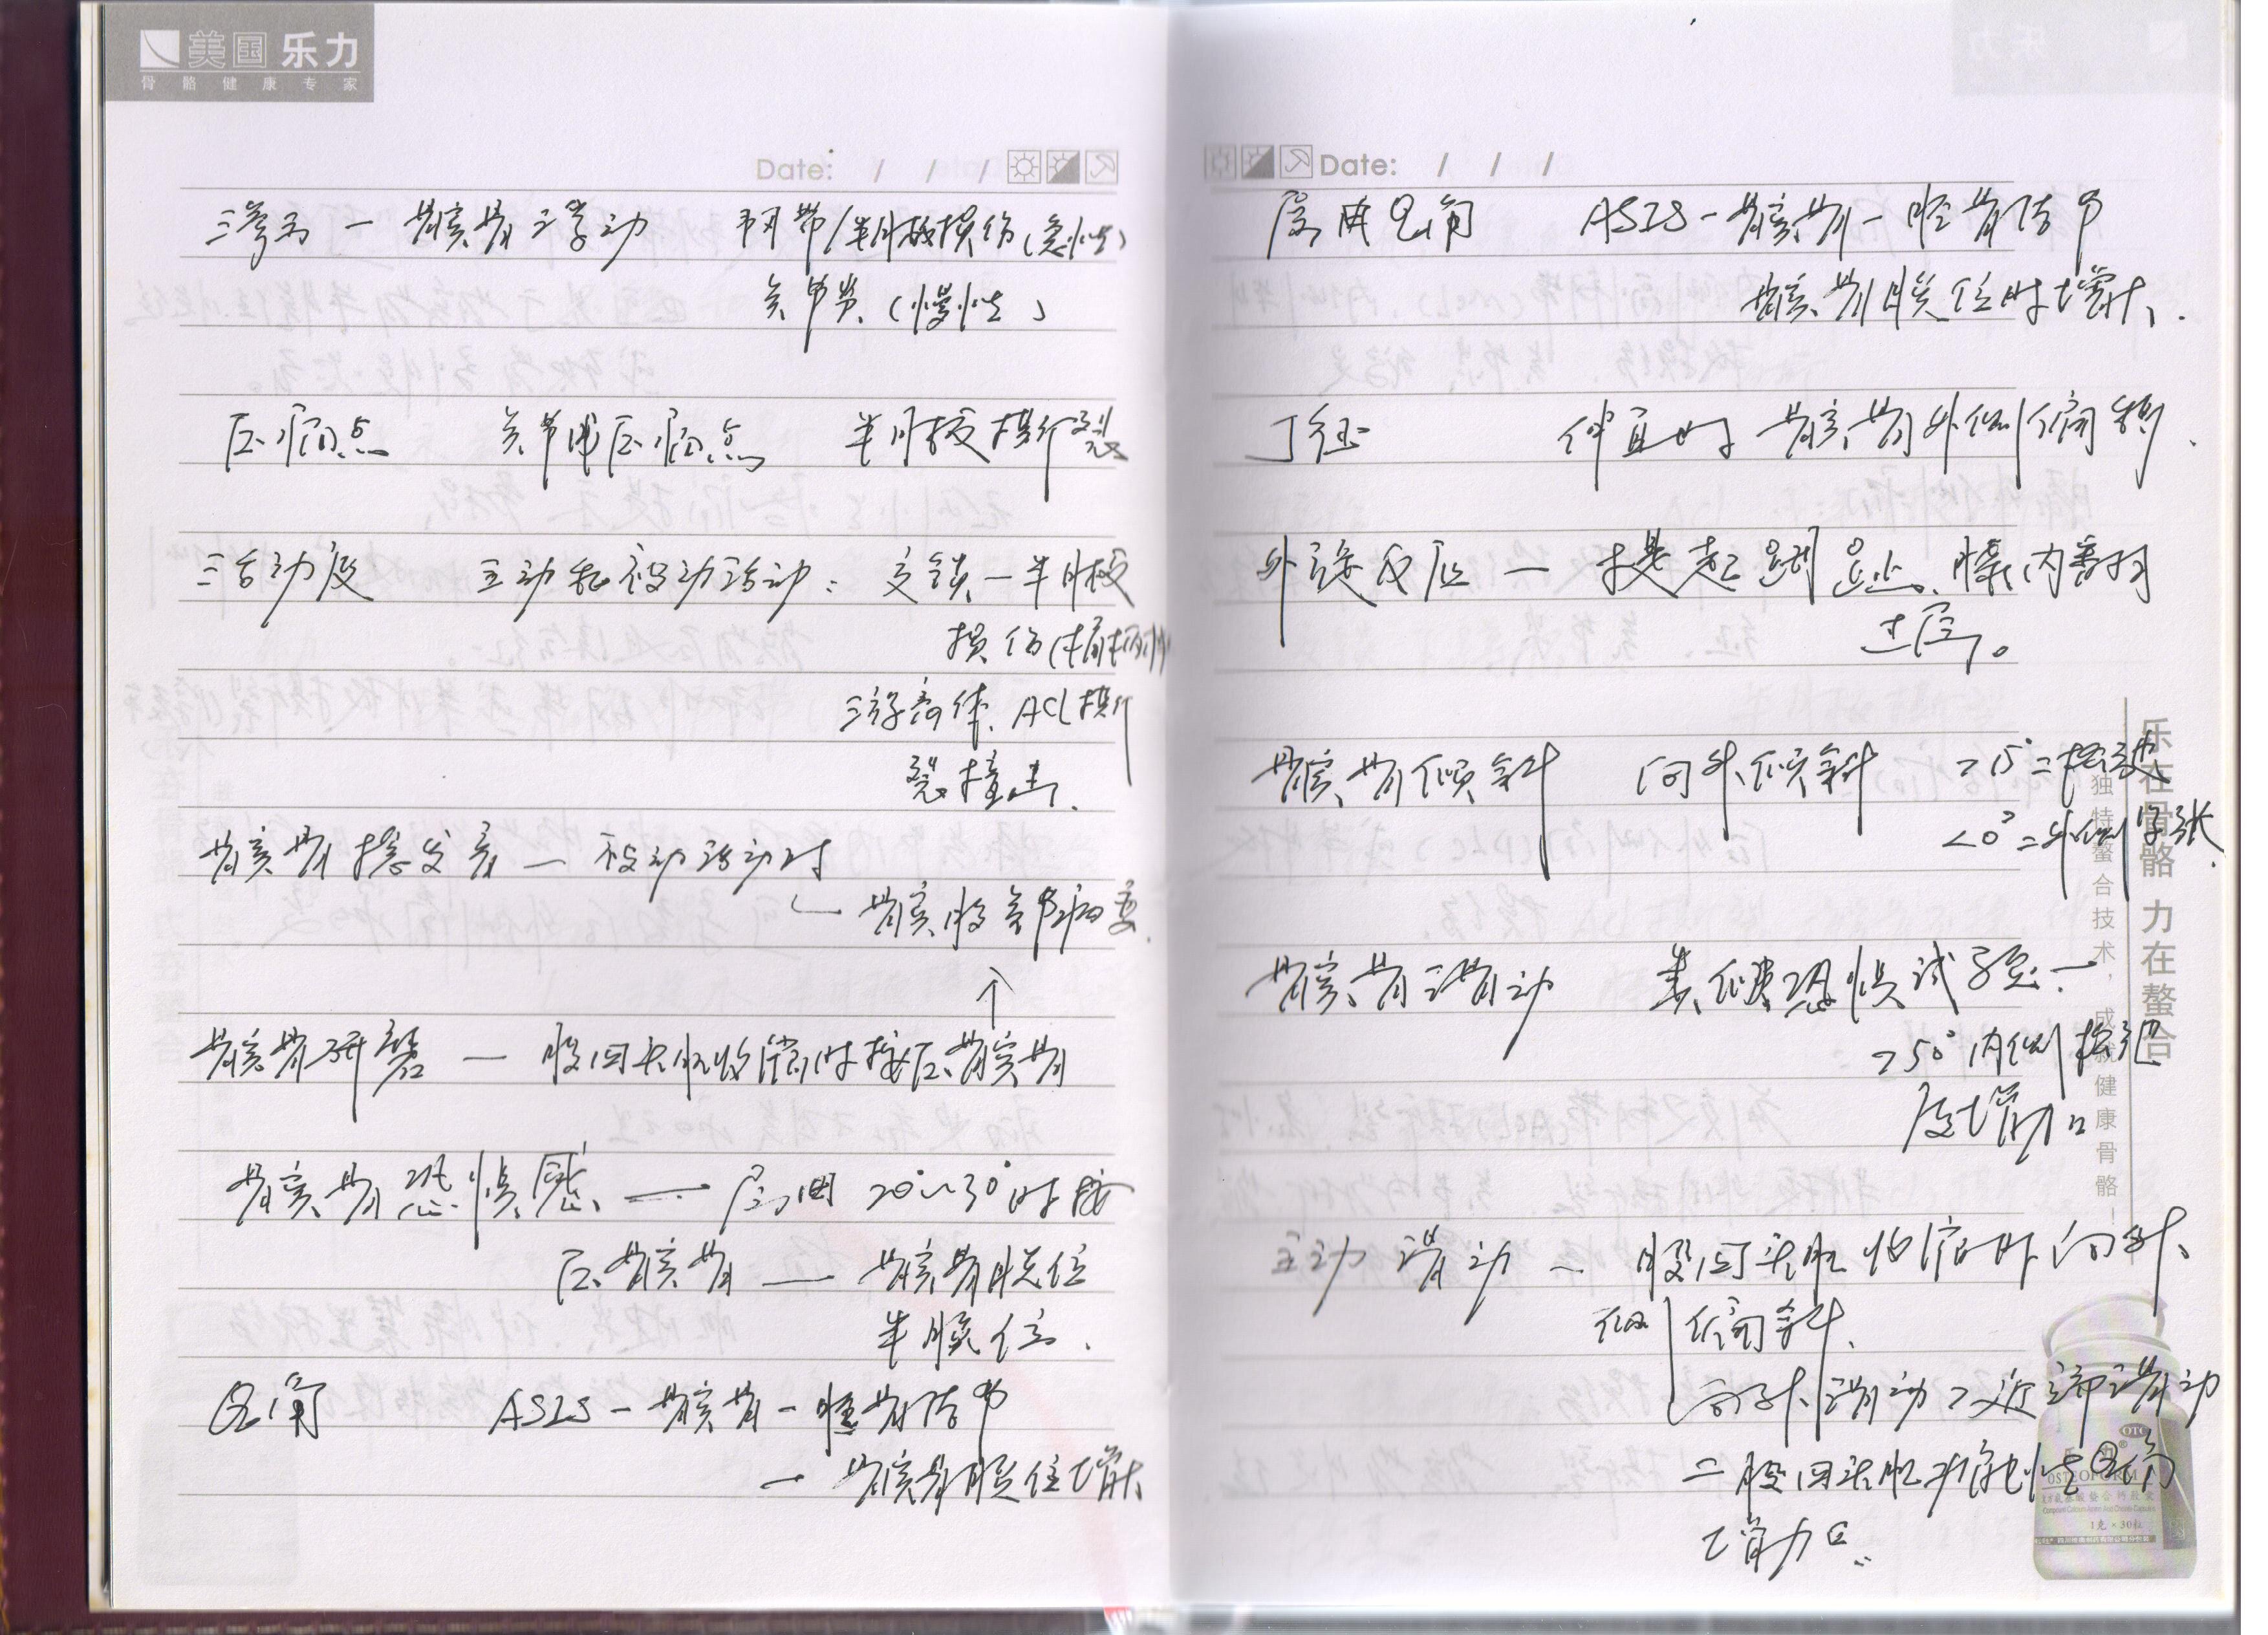 美国 乐力
骨骼健康专家
Date: / / /
浮and — 髌骨浮动 韧带/半月板损伤(急性)
关节炎(慢性)
压痛点 关节隙压痛点 半月板撕裂
活动度 主动和被动活动: 交锁—半月板
损伤
游离体、ACL撕
裂撞击.
髌骨捻发音 — 被动活动时
髌股关节病变.
↑
髌骨研磨 — 股四头肌收缩时按压髌骨
髌骨恐惧感 — 屈曲 20°~30°时按
压髌骨 — 髌骨脱位
半脱位.
Q角 ASIS-髌骨-胫骨结节
— 髌骨脱位增大
Date: / / /
屈曲Q角 ASIS-髌骨-胫骨结节
髌骨脱位时增大.
J征 伸直时髌骨外侧偏移.
外旋反屈 — 提起踇趾、膝内翻
过屈。
髌骨倾斜 向外倾斜 >15°=松弛
<0°=外侧紧张.
髌骨滑动 类似恐惧试验—
>50°内侧松弛
度增加
主动滑动 — 股四头肌收缩时向外
侧偏斜.
向外滑动>近端滑动
=股四头肌功能性Q角
增加.
乐在骨骼 力在螯合
独特螯合技术,成就健康骨骼!
OTC
乐力
OSTEOFORM
1克×30粒